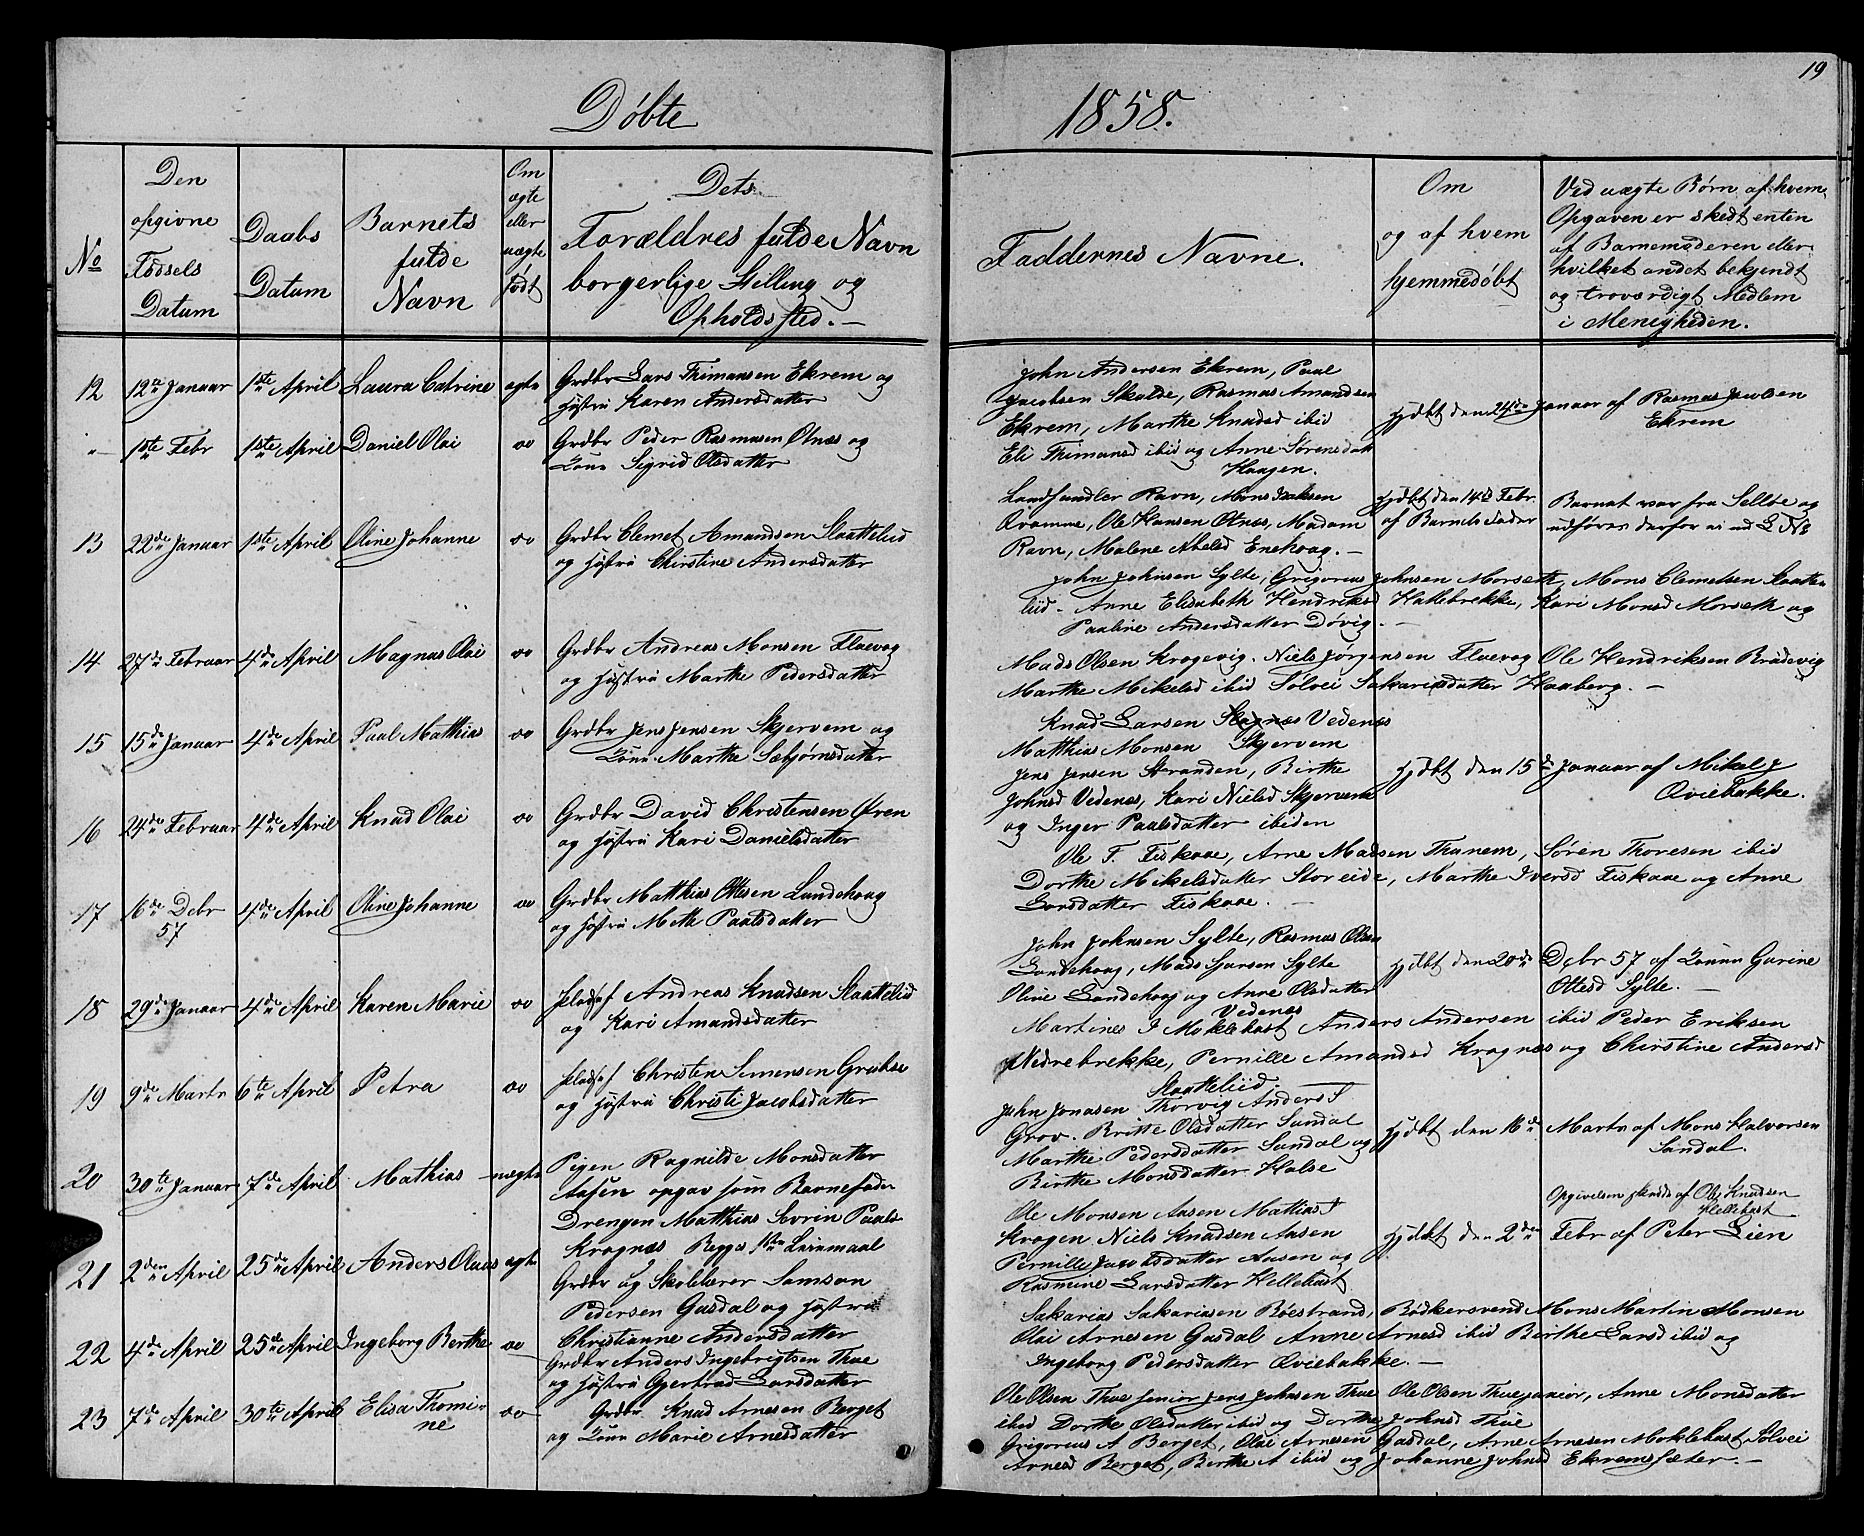 19
Døbte
1858.
No
Den
opgivne
Fødsels
Datum
Daabs
Datum
Barnets
fulde
Navn
Om
ægte
eller
uægte
født
Dets
Forældres fulde Navn
borgerlige Stilling og
Opholdssted. —
Faddernes Navne.
Om
og af hvem
hjemmedøbt
Ved uægte Børn af hvem
Opgaven er skedt enten
af Barnemoderen eller
hvilket andet bekjendt
og troværdigt Medlem
i Menigheden.
12 12te Januar 1ste April Laura Catrine ægte Grdbr Lars Thimansen Ekrem og
Hustru Karen Andersdatter
John Andersen Ekrem, Paal
Jacobsen Skulde, Rasmus Amandsen
Ekrem, Marthe Knudsd ibid
Eli Thimansd ibid og Anne Sørensdatt
Haagen.
hjdbt den 24de Januar af Rasmus Jacobsen
Ekrem
" 1ste Febr 1ste April Daniel Olai oo Grdbr Peder Rasmusen Otnes og
Kone Sigrid Olsdatter
Landhandler Ravn, Mons Isaksen
Ole Hansen Otnes, Madam
Ravn, Malene Abelsd Enehaag. —
hjdbt den 14de Febr.
af Barnets Fader
Barnet var fra Sellbø og
udføres derfor ei ud L No
13 22de Januar 1ste April Oline Johanne oo Grdbr Clemet Amandsen Slaattelid
og Hustru Christine Andersdatter
John Johnsen Sylte, Grigorius Johnsen Morsæth, Mons Clemetsen Slaatte
lid. Anne Elisabeth Hendriksd Hallebrekke, Kari Monsd Morsæth og
Pauline Andersdatter Døvig. —
14 27de Februar 4de April Magnus Olai oo Grdbr Andreas Monsen Flaevog
og Hustru Marthe Pedersdatter
Mads Olsen Krogevig. Niels Jørgensen Flaevog Ole Hendriksen Brudevig
Marthe Mikelsd ibid Sølvei Sakariasdatter Haaberg. —
15 15de Januar 4de April Paul Mathias oo Grdbr Jens Jensen Skjervem og
Kone Marthe Sæbjørnsdatter
Knud Larsen Vedenes
Matthias Monsen Skjervem
Jens Jensen Stranden, Birthe
Johnsd Vedenes, Kari Nielsd Skjervem
og Inger Paulsdatter ibiden
hjdbt den 15de Januar af Mikel J
Øviebakke.
16 24de Februar 4de April Knud Olai oo Grdbr David Christensen Øren
og Hustru Kari Danielsdatter
Ole F. Fiskaae, Arne Madsen Thunem, Søren Thoresen ibid
Dorthe Mikelsdatter Storeide, Marthe Iversd Fiskaae og Anne
Larsdatter Fiskaae. —
17 16de Debr 4de April Oline Johanne oo Grdbr Matthias Ottesen Lundehaag
57 og Hustru Mette Paulsdatter
John Johnsen Sylte, Rasmus Olsen
Lundehaag, Mads Sylte
Oline Lundehaag og Anne Olsdatter
Vedenes
hjdbt den 20de Debr 57 af Konen Gurine
Ottesd Sylte. —
18 29de Januar 4de April Karen Marie oo Andreas Knudsen Slaattelid
og Kari Amandsdatter
Martines I Moklebust Anders Andersen ibid Peder Eriksen
Nedrebrekke, Pernille Amandsd Krognes og Christine Andersd
Slaattelid.
19 9de Marts 6te April Petra oo Christen Simensen
og Hustru Christi Jacobsdatter
John Jonasen Thorvig Anders
Grov. Britte Olsdatter Sundal
Marthe Pedersdatter Sundal og
Birthe Monsdatter Halse
hjdbt den 16de Marts af Mons Halvorsen
Sundal.
20 30te Januar 7de April Mathias uægte Pigen Ragnilde Monsdatter
Aasen opgav som Barnefader
Drengen Matthias Severin Pauls
Krognes Begges 1ste Leiermaal
Ole Monsen Aasen Mathias
Krogen Niels Knudsen Aasen
Pernille Jacobsdatter Aasen og
Rasmine Larsdatter Hellebust
hjdbt den 2den Febr af Peter Lien
Opgivelsen skedde af Ole Knudsen
Hellebust
21 2den April 25de April Anders Olaus ægte Grdbr og Skolelærer Samson
Pedersen Gusdal og Hustru
Christianne Andersdatter
Sakarias Sakariasen Boestrand, Bødkersvend Mons Martin Monsen
Olai Arnesen Gusdal Anne Arnesd ibid Birthe Larsd ibid og
Ingeborg Pedersdatter Øviebakke. —
22 4de April 25de April Ingeborg Berthe oo Grdbr Anders Ingebrigtsen Thue
og Hustru Gjertrud Larsdatter
Ole Olsen Thue senior Jens Johnsen Thue Ole Olsen Thue junior, Anne Monsdatter
ibid Dorthe Olsdatter ibid og Dorthe Johnsd Thue
23 7de April 30te April Elisa Thomi-
ne oo Grdbr Knud Arnesen Berget
og Kone Marie Arnesdatter
Grigorius A Berget, Olai Arnesen Gusdal, Arne Arnesen Moklebust, Sølvei
Arnesd Berget, Berthe A ibid og Johanne Johnsd Ekremsæter. —